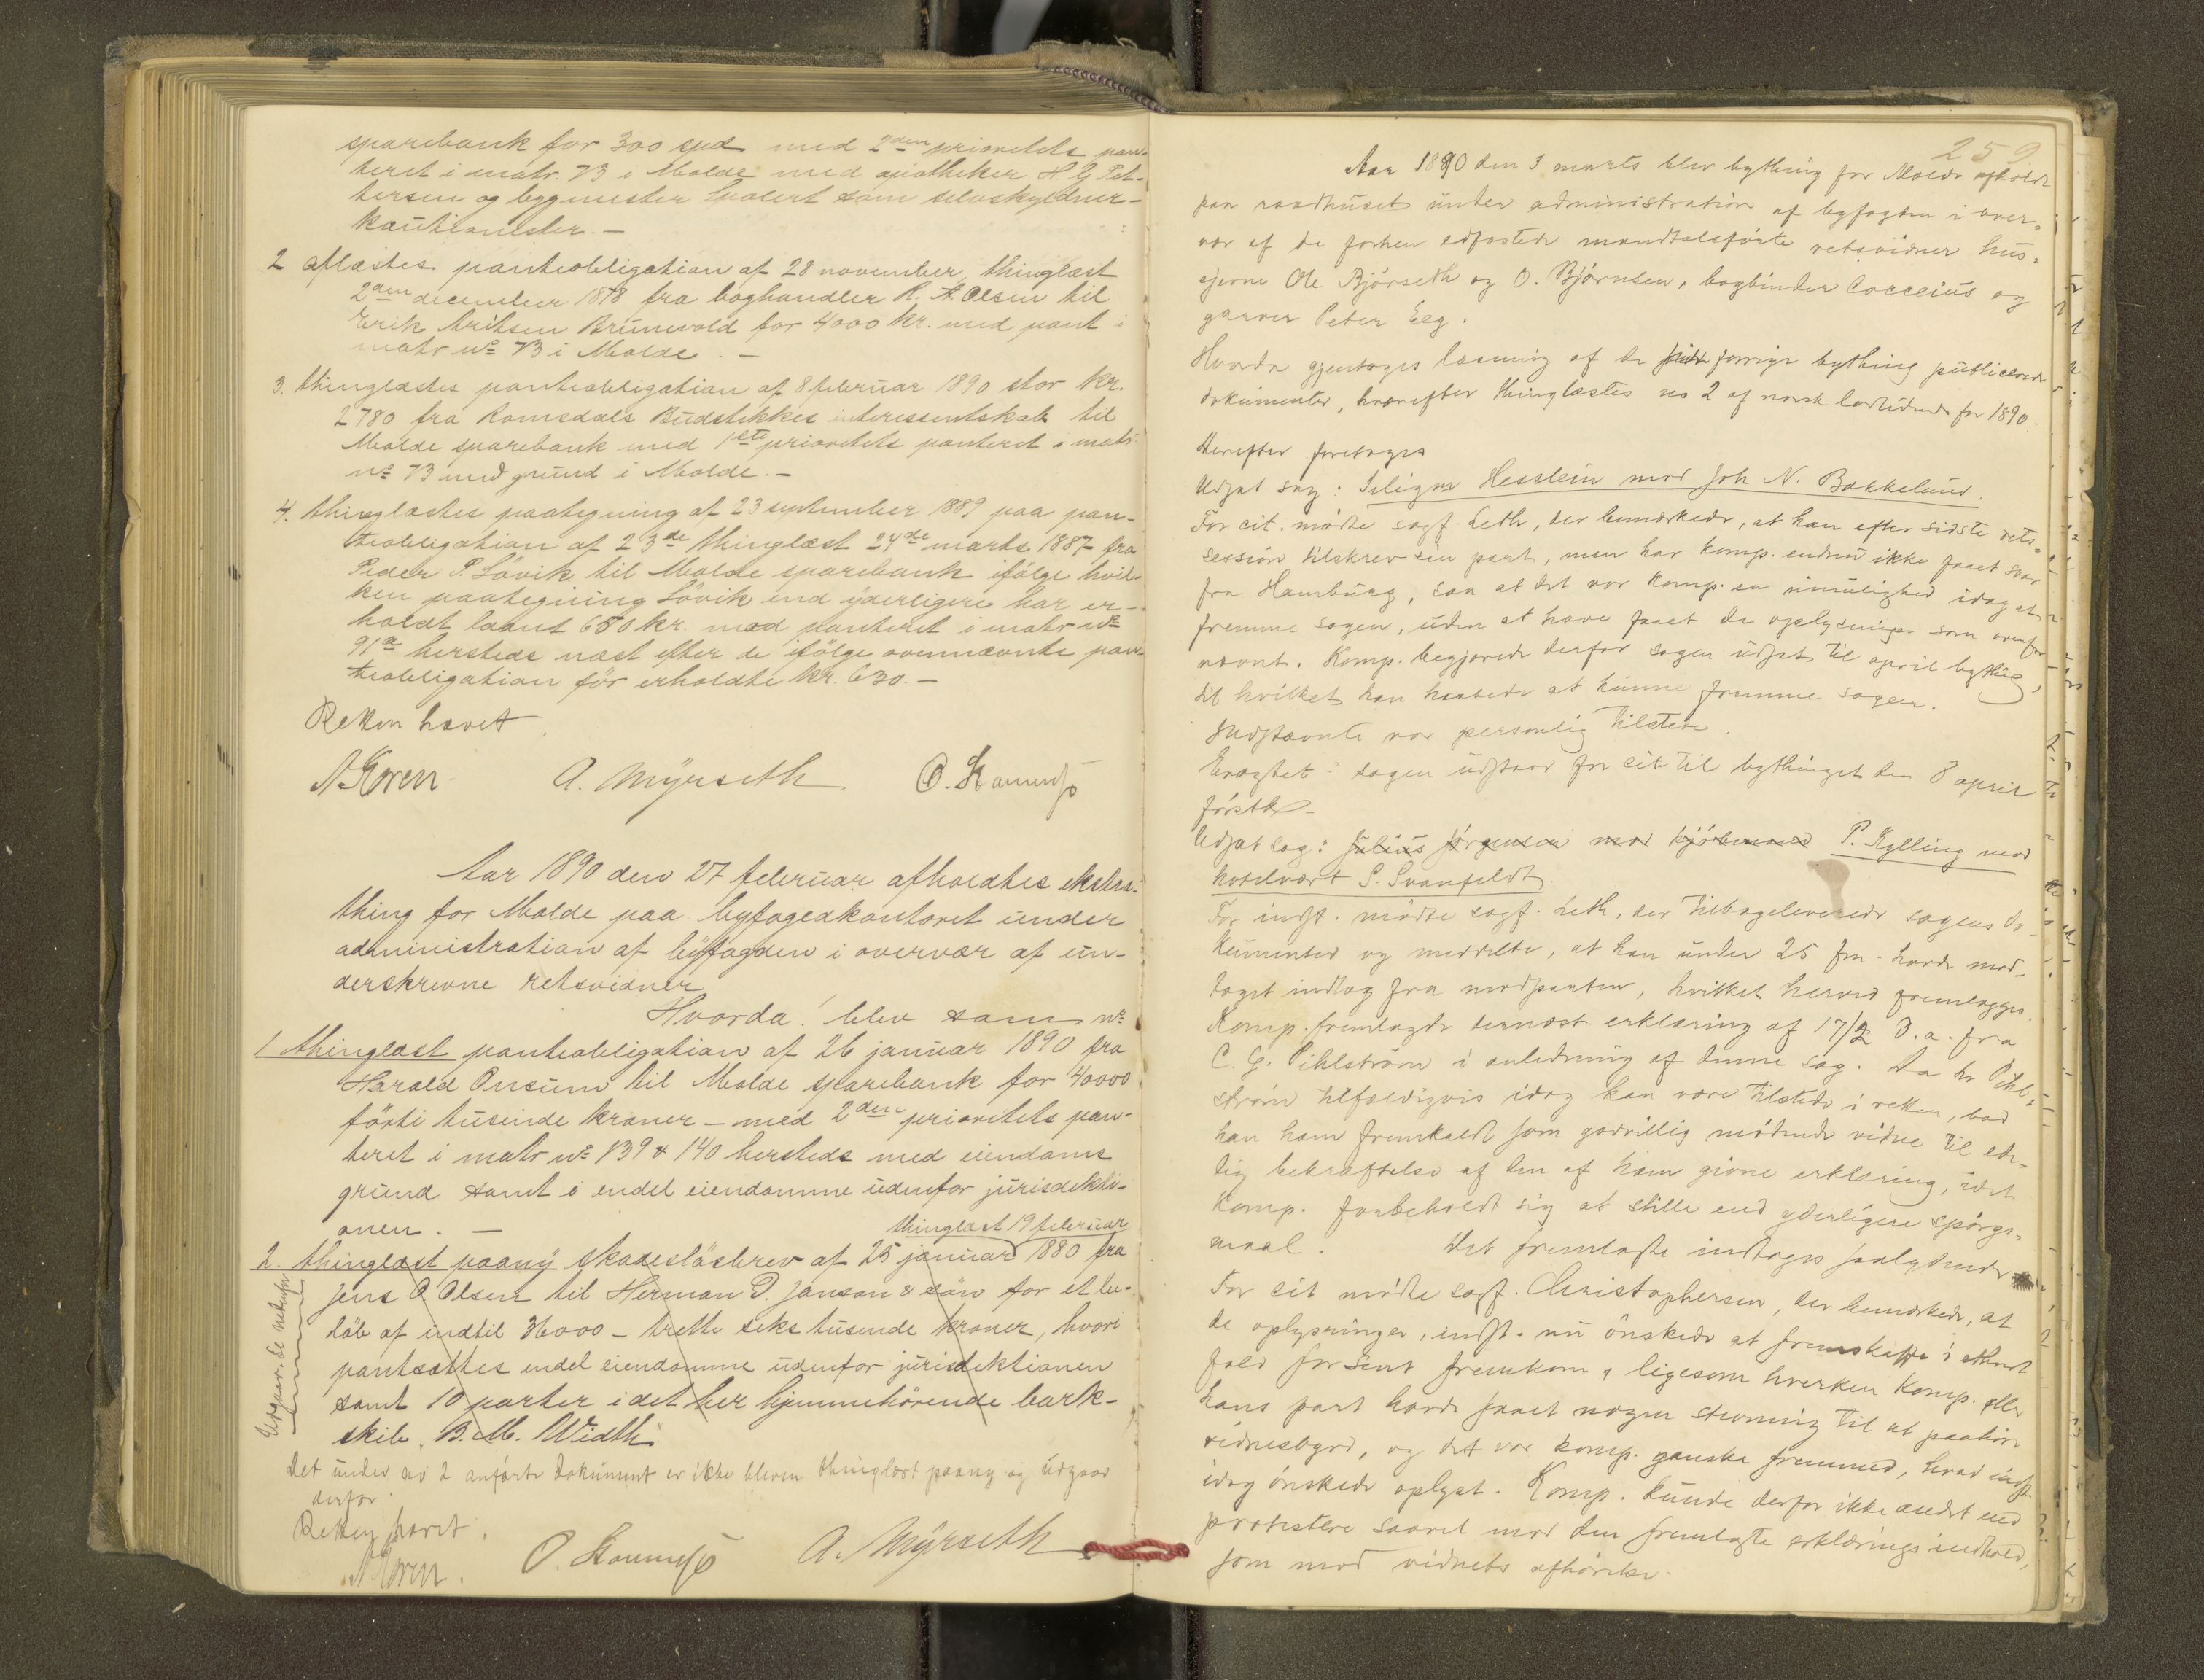 sparebank for 300 spd med 2den prioritets pan-
teret i matr. 73 i Molde med apotheker H G Pet-
tersen og bygmester Evalert som selvskyldner-
kautionister. —
2 aflæstes panteobligation af 28 november, thinglæst
2den december 1878 fra boghandler R. A. Olsen til
Erik Eriksen Brunvold for 4000 kr. med pant i
matr no 73 i Molde. —
3. thinglæstes panteobligation af 8 februar 1890 stor kr.
2780 fra Romsdals Budstikkes interessentskab til
Molde sparebank med 1ste prioritets panteret i matr.
no 73 med grund i Molde. —
4. thinglæstes paategning af 23 september 1889 paa pan-
teobligation af 23de thinglæst 24de marts 1887 fra
Peder P. Løvik til Molde sparebank ifølge hvil-
ken paategning Løvik end yderligere har er-
holdt laant 650 kr. mod panteret i matr no
91a hersteds næst efter de ifølge ovennævnte pan-
teobligation før erholdte kr. 630. —
Retten hævet.
N Koren A. Myrseth O. Stamnesø
Aar 1890 den 27 februar afholdtes ekstra-
thing for Molde paa byfogedkontoret under
administration af byfogden i overvær af un-
derskrevne retsvidner
Hvorda! blev som no
1 thinglæst panteobligation af 26 januar 1890 fra
Harald Onsum til Molde sparebank for 40000
førti tusinde kroner – med 2den prioritets pan-
teret i matr no 139 & 140 hersteds med eiendoms
grund samt i endel eiendomme udenfor jurisdikti-
onen. —
thinglæst 19 februar
2. thinglæst paany skadesløsbrev af 25 januar 1880 fra
Jens O. Olsen til Herman D. Janson & søn for et be-
løb af indtil 36000 – trette seks tusende kroner, hvori
pantsattes endel eiendomme udenfor jurisdiktionen
samt 10 parter i det her hjemmehørende bark-
skib, B. M. Width"
Udgaar. Se nedenfor
Det under no 2 anførte dokument er ikke bleven thinglæst paany og udgaar
derfor.
Retten hævet.
N Koren. O. Stamnesø A. Myrseth
259.
Aar 1890 den 3 marts blev bything for Molde afholdt
paa raadhuset under administration af byfogden i over-
vær af de forhen edfæstede mandtalsførte retsvidner hus-
ejerne Ole Bjørseth og O. Bjørnsen, bogbinder Cocceius og
garver Peter Eeg.
Hvorda gjentoges læsning af de forrige bything publicerede
dokumenter, hvorefter thinglæstes no 2 af norsk lovtidende for 1890.
Derefter foretoges
Udsat sag: Seligm Hesslein mod Joh N. Bakkelund.
For cit. mødte sagf. Leth, der bemærkede, at han efter sidste rets-
session tilskrev sin part, men har komp. endnu ikke faaet svar
fra Hamburg, saa at det var komp. en umulighed idag at
fremme sagen, uden at have faaet de oplysninger som ovenfor
nævnt. Komp. begjærede derfor sagen udsat til april bything,
til hvilket han haabede at kunne fremme sagen.
Indstævnte var personlig tilstede.
Eragtet: sagen udstaar for cit til bythinget den 8 april
førstk.
Udsat sag: Julius Jørgensen mod kjøbmand P. Kylling mod
hotelvært S. Svanfeldt
For indst. mødte sagf. Leth, der tilbageleverede sagens do-
kumenter og meddelte, at han under 25 fm. havde mod-
taget indlæg fra modparten, hvilket herved fremlægges.
Komp. fremlagde dernæst erklæring af 17/2 d.a. fra
C. G. Pihlstrøm i anledning af denne sag. Da hr Pihl-
strøm tilfældigvis idag kan være tilstede i retten, bad
han ham fremkaldt som godvillig mødende vidne til ed-
lig bekræftelse af den af ham givne erklæring, idet
komp. forbeholdt sig at stille end yderligere spørgs-
maal. Det fremlagte indtages saalydende
For cit mødte sagf. Christophersen, der bemærkede, at
de oplysninger, indst. nu ønskede at fremskaffe i ethvert
fald for sent fremkom, ligesom hverken komp. eller
hans part havde faaet nogen stevning til at paahøre
vidnesbyrd, og det var komp. ganske fremmed, hvad indst.
idag ønskede oplyst. Komp. kunde derfor ikke andet end
protestere saavel mod den fremlagte erklærings indhold,
som mod vidnets afhørelse.